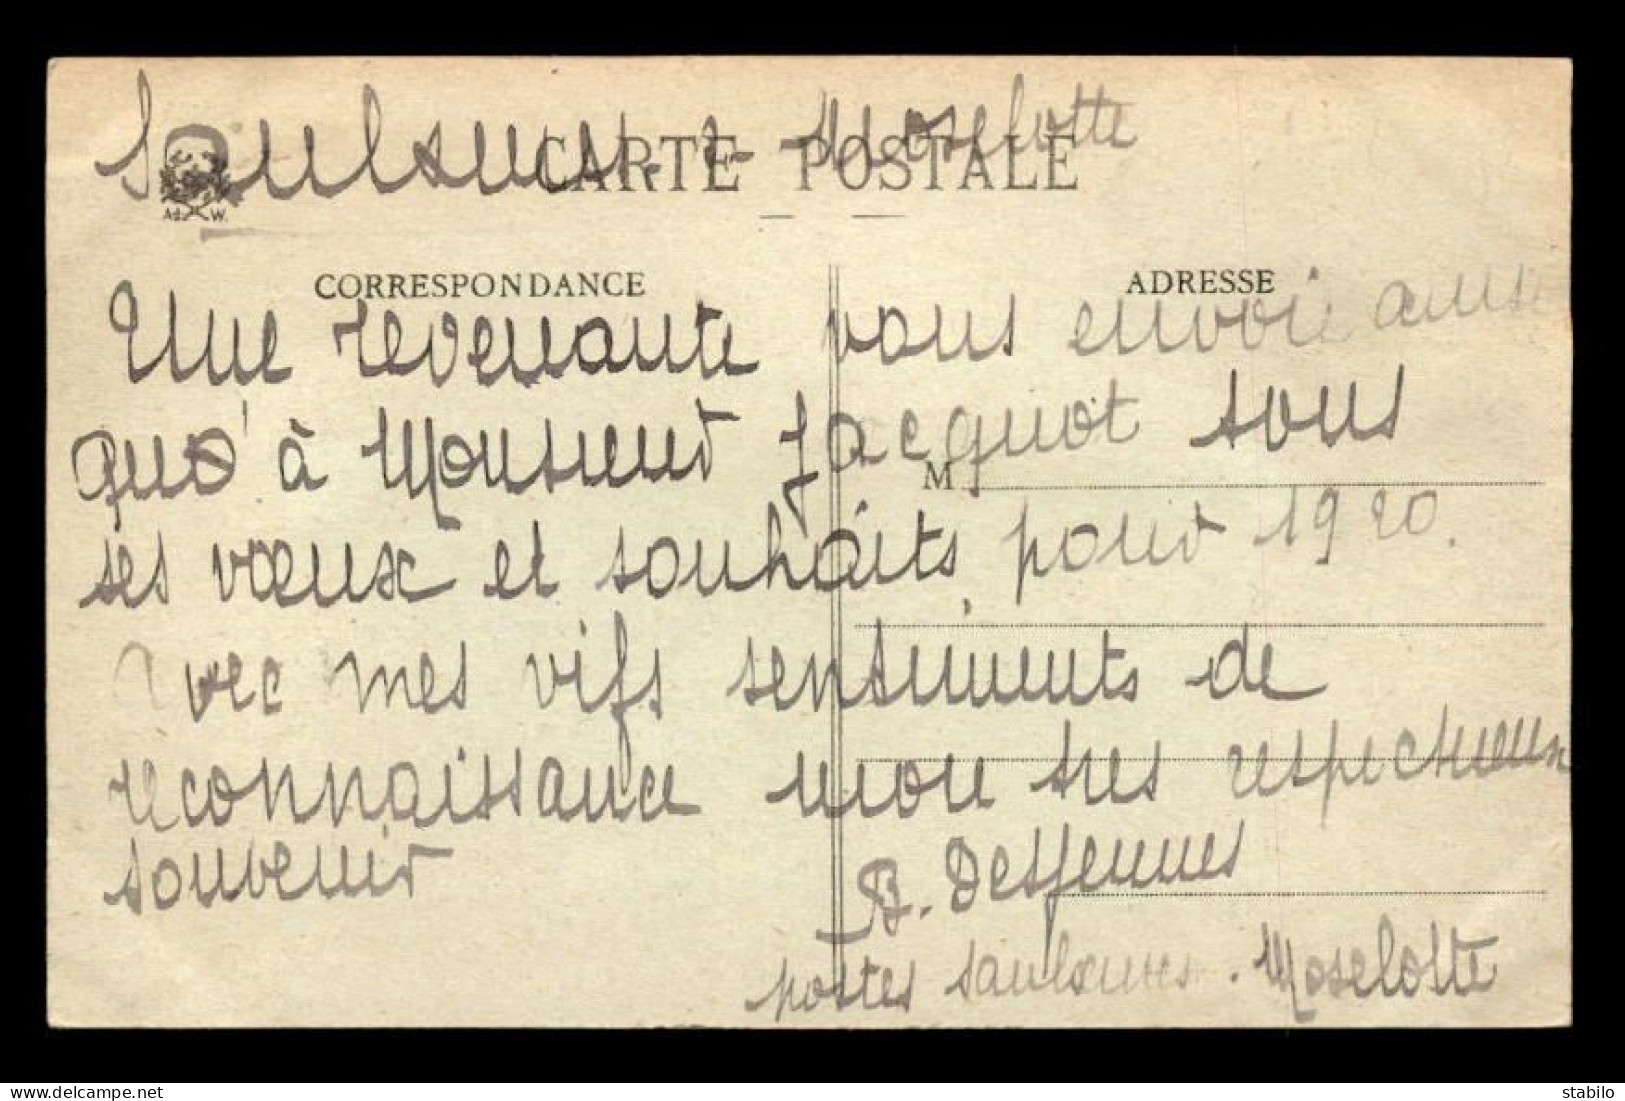 Saulxures - s - Moselotte
CARTE POSTALE
Ad. W.
CORRESPONDANCE
ADRESSE
Une revenante vous envoie ainsi
qu'à Monsieur Jacquot tous
M
ses vœux et souhaits pour 1920.
Avec mes vifs sentiments de
reconnaissance mon très respectueux
souvenir
B. Desfennes
postes Saulxures. Moselotte
www.delcampe.net
stabilo